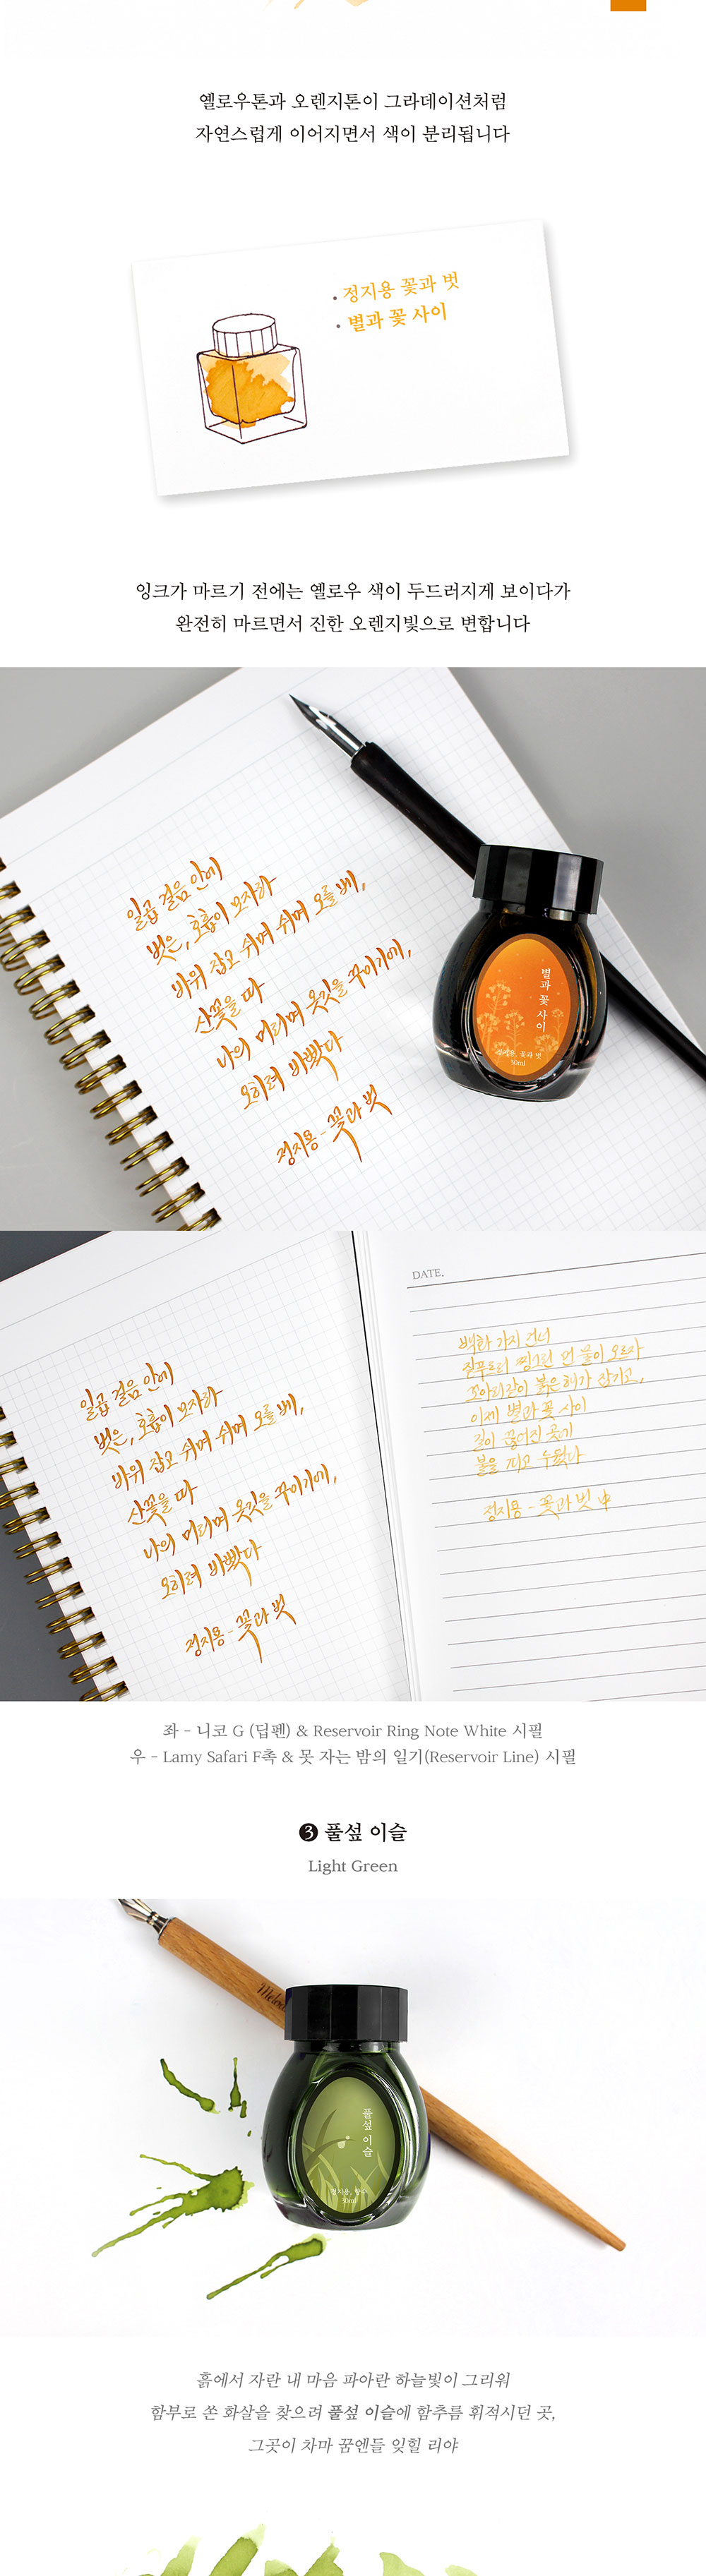 옐로우톤과 오렌지톤이 그라데이션처럼
자연스럽게 이어지면서 색이 분리됩니다
• 정지용 꽃과 벗
• 별과 꽃 사이
잉크가 마르기 전에는 옐로우 색이 두드러지게 보이다가
완전히 마르면서 진한 오렌지빛으로 변합니다
일곱 걸음 안에
벗은, 호흡이 모자라
바위 잡고 쉬며 쉬며 오를 제,
산꽃을 따
나의 머리며 옷깃을 꾸미기에,
오히려 바빴다
정지용 - 꽃과 벗
별과 꽃 사이
정지용, 꽃과 벗
50ml
일곱 걸음 안에
벗은, 호흡이 모자라
바위 잡고 쉬며 쉬며 오를 제,
산꽃을 따
나의 머리며 옷깃을 꾸미기에,
오히려 바빴다
정지용 - 꽃과 벗
DATE.
백화 가지 건너
짙푸르러 찡그린 먼 물이 오르자
꼬아리같이 붉은 해가 잠기고,
이제 별과 꽃 사이
길이 끊어진 곳에
불을 피고 누웠다
정지용 - 꽃과 벗 中
좌 - 니코 G (딥펜) & Reservoir Ring Note White 시필
우 - Lamy Safari F촉 & 못 자는 밤의 일기(Reservoir Line) 시필
❸ 풀섶 이슬
Light Green
풀섶 이슬
정지용, 향수
50ml
흙에서 자란 내 마음 파아란 하늘빛이 그리워
함부로 쏜 화살을 찾으려 풀섶 이슬에 함추름 휘적시던 곳,
그곳이 차마 꿈엔들 잊힐 리야